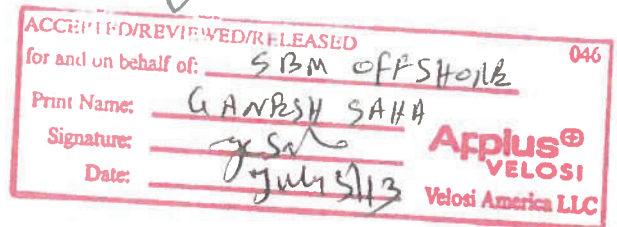 ACCEPTED/REVIEWED/RELEASED 046
for and on behalf of: SBM OFFSHORE
Print Name: GANESH SAHA
Signature:
Date: July 5/13
Applus+
VELOSI
Velosi America LLC